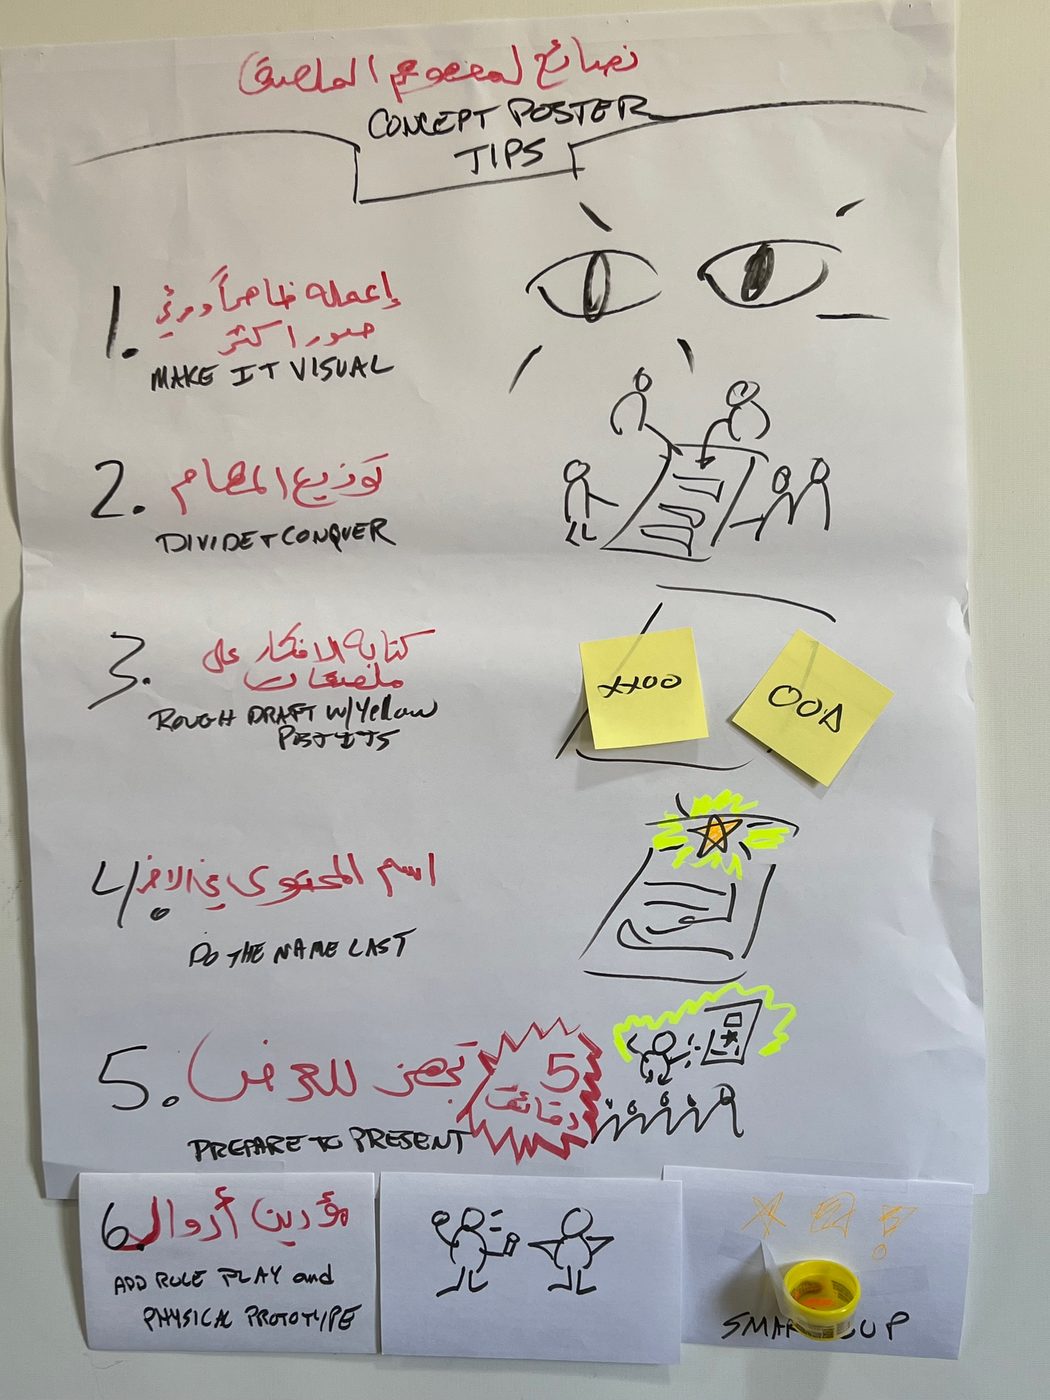 نصائح لمفهوم الملصق
CONCEPT POSTER
TIPS
1. إعمله ظاهراً ومرئي
صور اكثر
MAKE IT VISUAL
2. توزيع المهام
DIVIDE + CONQUER
3. كتابة الافكار على
ملصقات
ROUGH DRAFT W/ Yellow
POSTITS
XXOO
OO
4. اسم المحتوى في الاخر
DO THE NAME LAST
5. تجهز للعرض
5
دقائق
PREPARE TO PRESENT
6. مؤدين أدوار
ADD ROLE PLAY and
PHYSICAL PROTOTYPE
SMAR CUP